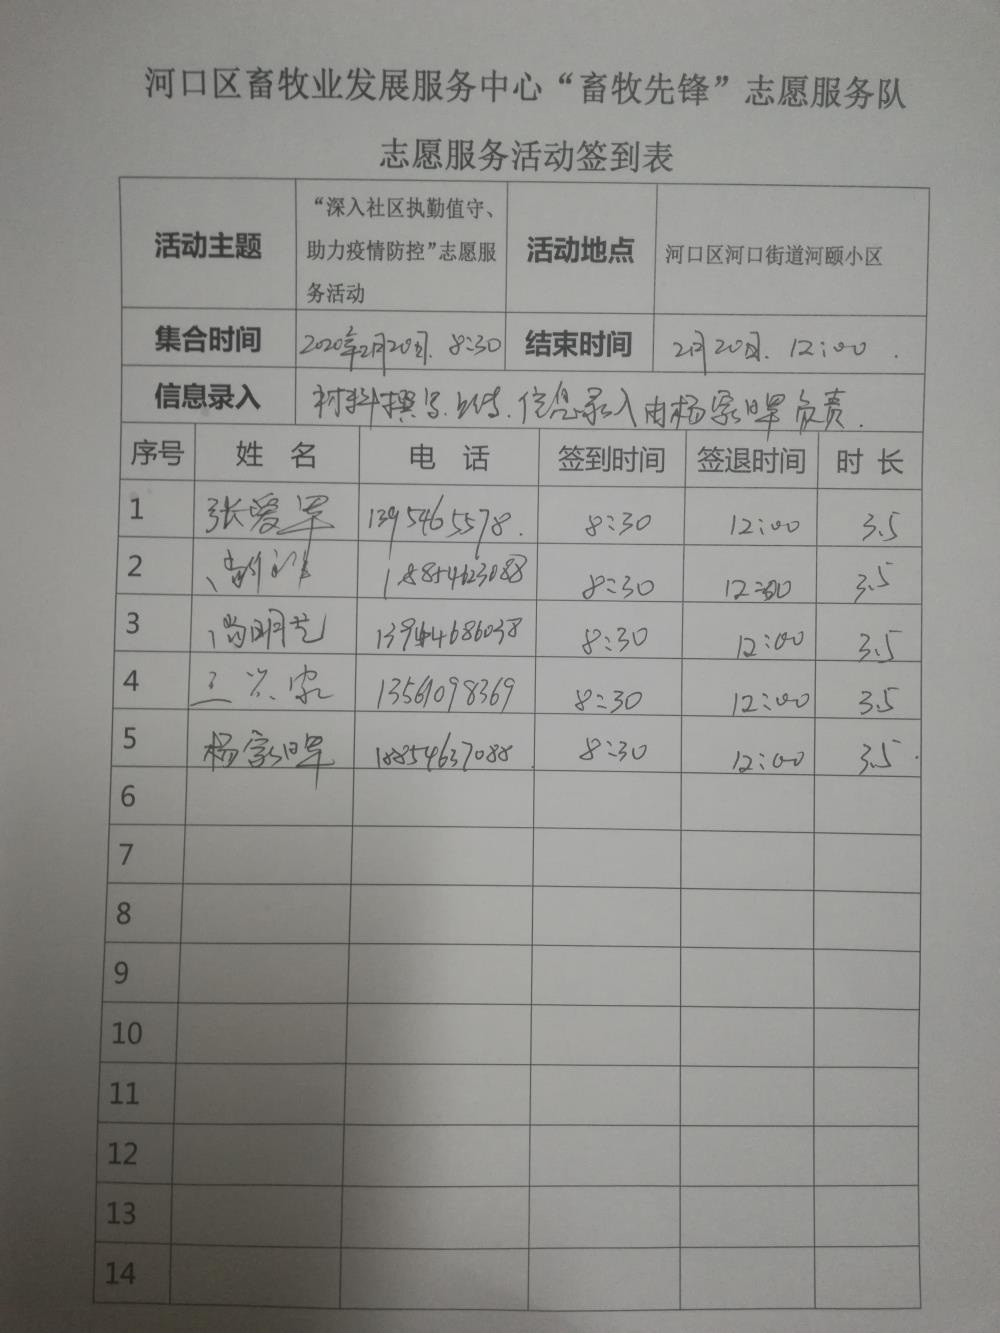 河口区畜牧业发展服务中心“畜牧先锋”志愿服务队
志愿服务活动签到表
活动主题 “深入社区执勤值守、助力疫情防控”志愿服务活动 活动地点 河口区河口街道河颐小区
集合时间 2020年2月20日. 8:30 结束时间 2月20日. 12:00.
信息录入 材料撰写.上传.信息录入由杨家 负责.
序号 姓名 电话 签到时间 签退时间 时长
1 张爱军 1395465578. 8:30 12:00 3.5
2 18854623088 8:30 12:00 3.5
3 尚明 8:30 12:00 3.5
4 王 家 13561098369 8:30 12:00 3.5
5 杨家 18854637088. 8:30 12:00 3.5.
6
7
8
9
10
11
12
13
14